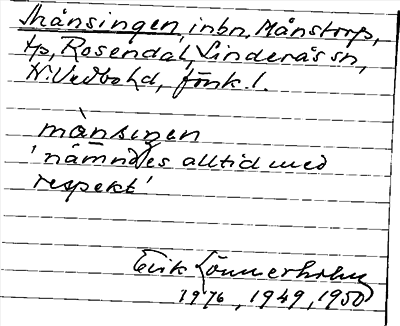 Månsingen, inbn, Månstorp,
tp, Rosendal, Linderås sn,
N Vedbo hd, Jönk. l.
mànsiŋen
'nämndes alltid med
respekt'
Erik Lönnerholm
1976, 1949, 1950